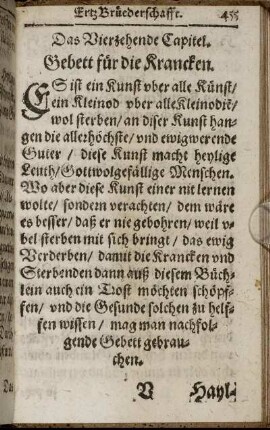 ErtzBruederschafft. 455
Das Vierzehende Capitel.
Gebett für die Krancken.
ES ist ein Kunst vber alle Künst/
ein Kleinod vber alle Kleinodiẽ/
wol sterben/ an diser Kunst han-
gen die allerhöchste/ vnd ewigwerende
Guter / diese Kunst macht heylige
Leuth/ Gottwolgefällige Menschen.
Wo aber diese Kunst einer nit lernen
wolte/ sondern verachten/ dem wäre
es besser/ daß er nie gebohren/ weil v-
bel sterben mit sich bringt/ das ewig
Verderben/ damit die Krancken vnd
Sterbenden dann auß diesem Büch-
lein auch ein Trost möchten schöpf-
fen/ vnd die Gesunde solchen zu helf-
fen wissen/ mag man nachfol-
gende Gebett gebrau-
chen.
V Hayl-